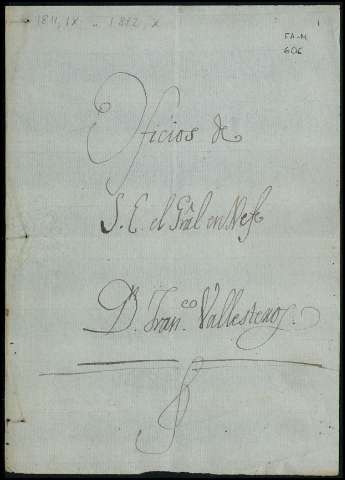 1811, IX - 1812, X
1
FA-M
606
Oficios de
S. E. el Grãl en Xefe
D. Fran.co Vallesteros.